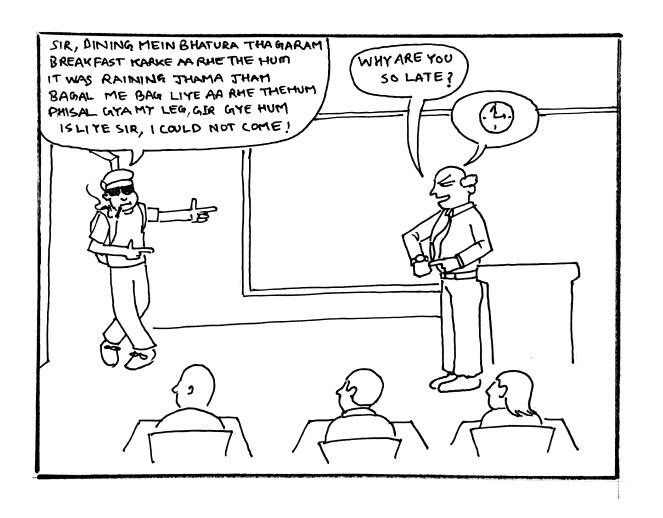 SIR, DINING MEIN BHATURA THA GARAM
BREAKFAST KARKE AA RHE THE HUM
IT WAS RAINING JHAMA JHAM
BAGAL ME BAG LIYE AA RHE THE HUM
PHISAL GYA MY LEG, GIR GYE HUM
IS LIYE SIR, I COULD NOT COME!
WHY ARE YOU
SO LATE?